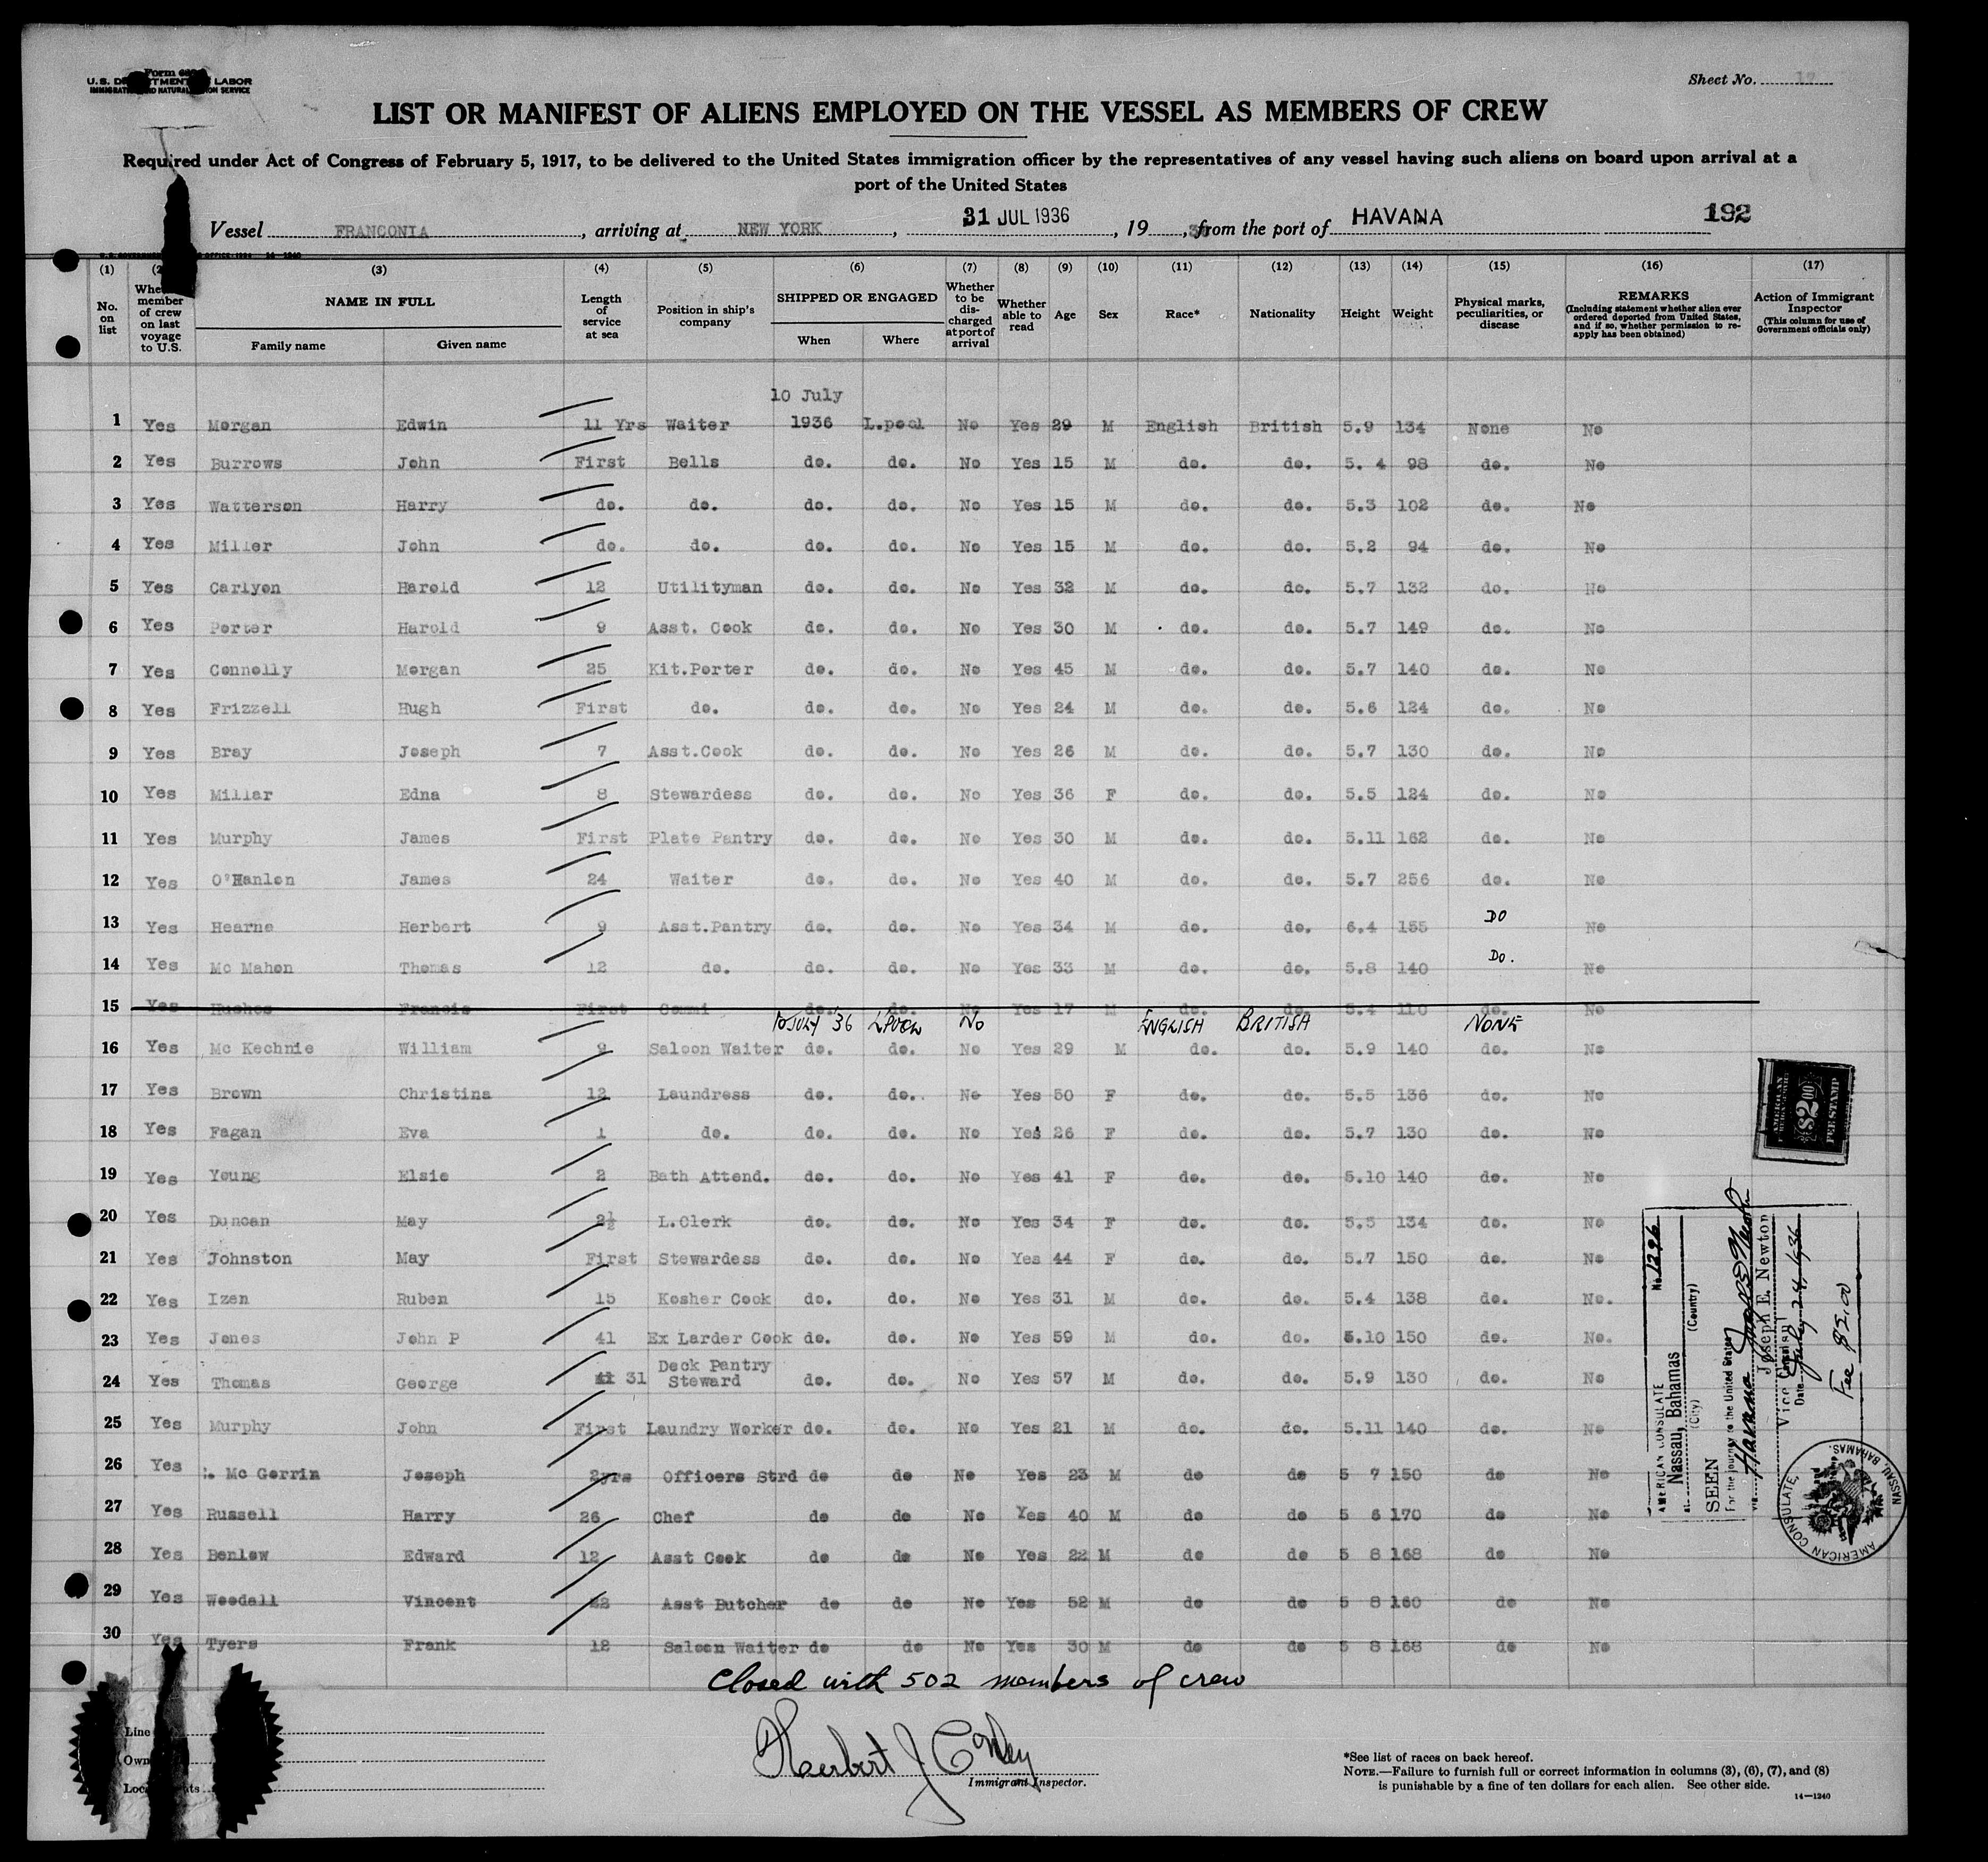 Form 680
U.S. DEPARTMENT OF LABOR
IMMIGRATION AND NATURALIZATION SERVICE
Sheet No. 12
LIST OR MANIFEST OF ALIENS EMPLOYED ON THE VESSEL AS MEMBERS OF CREW
Required under Act of Congress of February 5, 1917, to be delivered to the United States immigration officer by the representatives of any vessel having such aliens on board upon arrival at a
port of the United States
Vessel FRANCONIA, arriving at NEW YORK, 31 JUL 1936, 19 36, from the port of HAVANA 192
(1) (2) (3) (4) (5) (6) (7) (8) (9) (10) (11) (12) (13) (14) (15) (16) (17)
No. on list
Whether member of crew on last voyage to U.S.
NAME IN FULL
Family name Given name
Length of service at sea
Position in ship's company
SHIPPED OR ENGAGED
When Where
Whether to be discharged at port of arrival
Whether able to read
Age
Sex
Race*
Nationality
Height
Weight
Physical marks, peculiarities, or disease
REMARKS
(Including statement whether alien ever ordered deported from United States, and if so, whether permission to reapply has been obtained)
Action of Immigrant Inspector
(This column for use of Government officials only)
10 July
1 Yes Morgan Edwin 11 Yrs Waiter 1936 L.pool No Yes 29 M English British 5.9 134 None No
2 Yes Burrows John First Bells do. do. No Yes 15 M do. do. 5. 4 98 do. No
3 Yes Watterson Harry do. do. do. do. No Yes 15 M do. do. 5.3 102 do. No
4 Yes Miller John do. do. do. do. No Yes 15 M do. do. 5.2 94 do. No
5 Yes Carlyon Harold 12 Utilityman do. do. No Yes 32 M do. do. 5.7 132 do. No
6 Yes Porter Harold 9 Asst. Cook do. do. No Yes 30 M do. do. 5.7 149 do. No
7 Yes Connolly Morgan 25 Kit.Porter do. do. No Yes 45 M do. do. 5.7 140 do. No
8 Yes Frizzell Hugh First do. do. do. No Yes 24 M do. do. 5.6 124 do. No
9 Yes Bray Joseph 7 Asst.Cook do. do. No Yes 26 M do. do. 5.7 130 do. No
10 Yes Millar Edna 8 Stewardess do. do. No Yes 36 F do. do. 5.5 124 do. No
11 Yes Murphy James First Plate Pantry do. do. No Yes 30 M do. do. 5.11 162 do. No
12 Yes O'Hanlon James 24 Waiter do. do. No Yes 40 M do. do. 5.7 256 do. No
13 Yes Hearne Herbert 9 Asst.Pantry do. do. No Yes 34 M do. do. 6.4 155 DO No
14 Yes Mc Mahon Thomas 12 do. do. do. No Yes 33 M do. do. 5.8 140 DO. No
15 Yes Hughes Francis First Commi do. do. No Yes 17 M do. do. 5.4 110 do. No
10 JULY '36 L'POOL NO ENGLISH BRITISH NONE
16 Yes Mc Kechnie William 9 Saloon Waiter do. do. No Yes 29 M do. do. 5.9 140 do. No
17 Yes Brown Christina 12 Laundress do. do. No Yes 50 F do. do. 5.5 136 do. No
18 Yes Fagan Eva 1 do. do. do. No Yes 26 F do. do. 5.7 130 do. No
19 Yes Young Elsie 2 Bath Attend. do. do. No Yes 41 F do. do. 5.10 140 do. No
20 Yes Duncan May 2½ L.Clerk do. do. No Yes 34 F do. do. 5.5 134 do. No
21 Yes Johnston May First Stewardess do. do. No Yes 44 F do. do. 5.7 150 do. No
22 Yes Izen Ruben 15 Kosher Cook do. do. No Yes 31 M do. do. 5.4 138 do. No.
23 Yes Jones John P 41 Ex Larder Cook do. do. No Yes 59 M do. do. 5.10 150 do. No.
24 Yes Thomas George 31 Deck Pantry Steward do. do. No Yes 57 M do. do. 5.9 130 do. No
25 Yes Murphy John First Laundry Worker do. do. No Yes 21 M do. do. 5.11 140 do. No
26 Yes Mc Gorrin Joseph 2yrs Officers Strd do do No Yes 23 M do do 5 7 150 do No
27 Yes Russell Harry 26 Chef do do No Yes 40 M do do 5 6 170 do No
28 Yes Benlow Edward 12 Asst Cook do do No Yes 22 M do do 5 8 168 do No
29 Yes Woodall Vincent Asst Butcher do do No Yes 52 M do do 5 8 160 do No
30 Yes Tyers Frank 12 Saloon Waiter do do No Yes 30 M do do 5 8 168 do No
Closed with 502 members of crew
Herbert J Conley
Immigrant Inspector.
Line
Own
Loc
*See list of races on back hereof.
NOTE.—Failure to furnish full or correct information in columns (3), (6), (7), and (8)
is punishable by a fine of ten dollars for each alien. See other side.
14—1240
AMERICAN
$2.00
FEE STAMP
No. 1296
AMERICAN CONSULATE
at Nassau, Bahamas
(City) (Country)
SEEN
For the journey to the United States
via Havana
Joseph E. Newton
Vice Consul
Date July 28, 1936
Fee $2.00
AMERICAN CONSULATE, NASSAU, BAHAMAS.